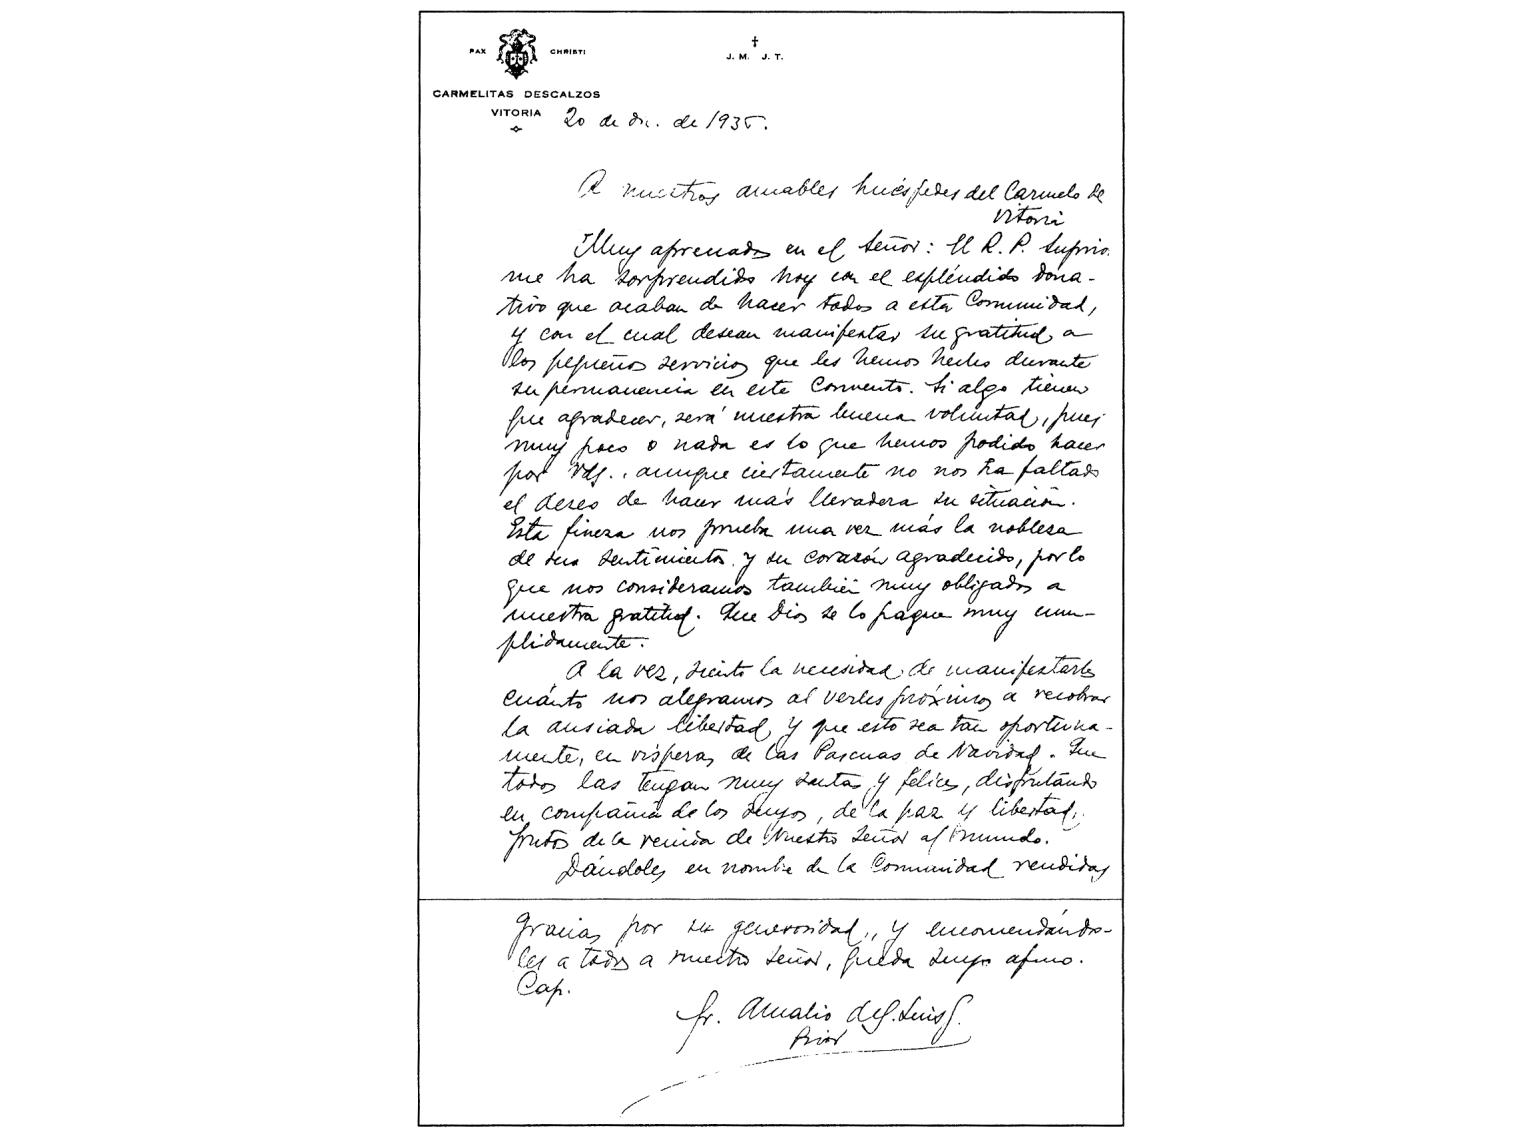 PAX CHRISTI
CARMELITAS DESCALZOS
VITORIA
J. M. J. T.
20 de dic. de 1935.
A nuestros amables huéspedes del Carmelo de
Vitoria
Muy apreciados en el Señor: El R. P. Suprior
me ha sorprendido hoy con el espléndido dona-
tivo que acaban de hacer todos a esta Comunidad,
y con el cual desean manifestar su gratitud a
los pequeños servicios que les hemos hecho durante
su permanencia en este Convento. Si algo tienen
que agradecer, será nuestra buena voluntad, pues
muy poco o nada es lo que hemos podido hacer
por Vds., aunque ciertamente no nos ha faltado
el deseo de hacer más llevadera su situación.
Esta fineza nos prueba una vez más la nobleza
de sus sentimientos y su corazón agradecido, por lo
que nos consideramos también muy obligados a
nuestra gratitud. Que Dios se lo pague muy cum-
plidamente.
A la vez, siento la necesidad de manifestarles
cuánto nos alegramos al verles próximos a recobrar
la ansiada libertad, y que esto sea tan oportuna-
mente, en vísperas de las Pascuas de Navidad. Que
todos las tengan muy santas y felices, disfrutando
en compañía de los suyos, de la paz y libertad,
frutos de la venida de Nuestro Señor al mundo.
Dándoles en nombre de la Comunidad rendidas
gracias por su generosidad, y encomendándo-
les a todos a nuestro Señor, queda suyo afmo.
Cap.
fr. Amalio de S. Luis G.
Prior